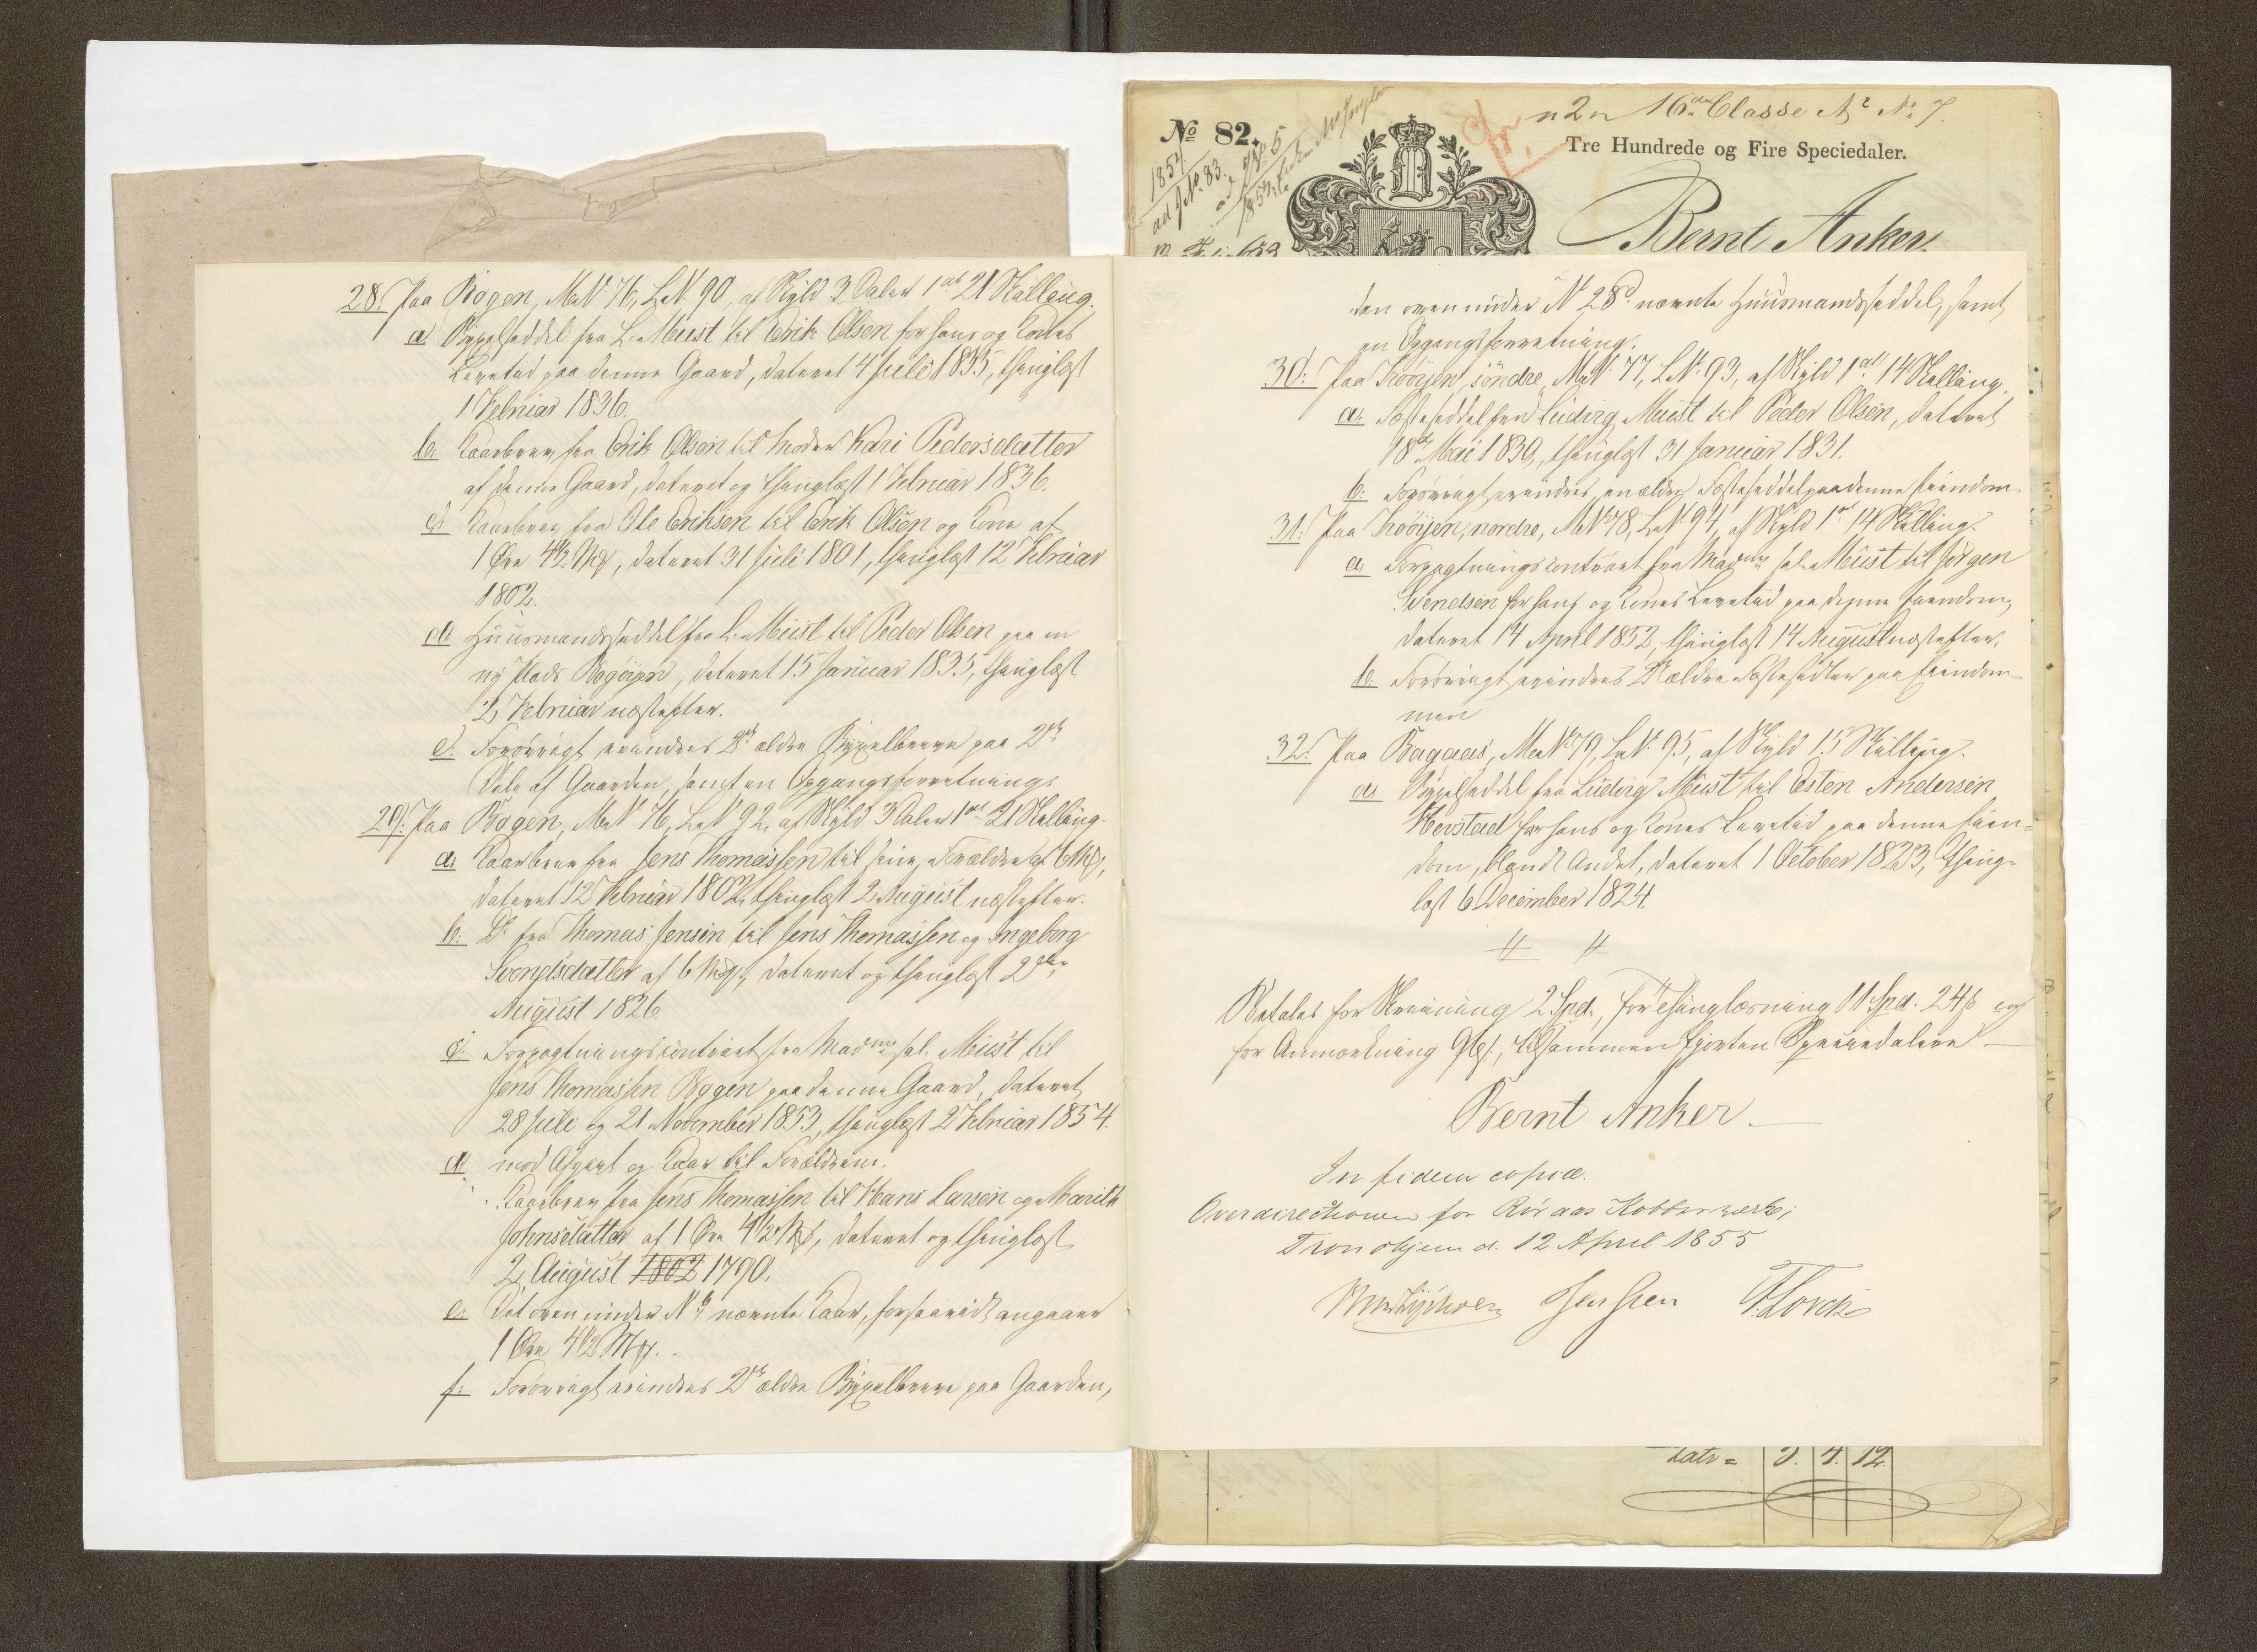 28. Paa Bøgen, M.N. 76, L.N. 90, af Skyld 3 Daler 1 ort 21 Skilling.
a. Bygselseddel fra L. Must til Erik Olsen for hans og Kones
Levetid paa denne Gaard, dateret 4 Juli 1835, thinglæst
1 Februar 1836.
b. Kaarbrev fra Erik Olsen til Moder Kari Pedersdatter
af denne Gaard, dateret og thinglæst 1 Februar 1836.
c. Kaarbrev fra Ole Eriksen til Erik Olsen og Kone af
1 Øre 4½ Mk, dateret 31 Juli 1801, thinglæst 12 Februar
1802.
d. Huusmandsseddel fra L. Must til Peder Olsen paa en
ny Plads Bøgøyen, dateret 15 Januar 1835, thinglæst
2 Februar næstefter.
e. Forøvrigt erindres 2de ældre Bygselbreve paa 2de
Dele af Gaarden, samt en Opgangsforretning.
29. Paa Bøgen, M.N. 76, L.N. 92, af Skyld 3 Daler 1 ort 21 Skilling.
a. Kaarbrev fra Jens Thomassen til sine Forældre af 6 Mk,
dateret 12 Februar 1802, thinglæst 2 August næstefter.
b. Do fra Thomas Jensen til Jens Thomassen og Ingeborg
Svendsdatter af 6 Mk, dateret og thinglæst 2den
August 1826.
c. Forpagtningscontract fra Madme sal. Must til
Jens Thomassen Bøgen paa denne Gaard, dateret
28 Juli og 21 November 1853, thinglæst 2 Februar 1854.
d. mod Afgivt og Kaar til Forældrene.
Kaarbrev fra Jens Thomassen til Hans Larsen og Marith
Johnsdatter af 1 Øre 4½ Mk, dateret og thinglæst
2 August 1802 1790.
e. Det oven under N. nævnte Kaar, forsaavidt angaaer
1 Øre 4½ Mk.
f. Forøvrigt erindres 2de ældre Bygselbreve paa Gaarden,
No 82.
1857.
n 2 n 16de Classe No 7.
Tre Hundrede og Fire Speciedaler.
Bernt Anker.
den oven under N 28d nævnte Huusmandsseddel, samt
en Opgangsforretning.
30. Paa Krøøyen, søndre, M.N. 77, L.N. 93, af Skyld 1 ort 14 Skilling.
a. Fæsteseddel fra Ludvig Must til Peder Olsen, dateret
18de Mai 1830, thinglæst 31 Januar 1831.
b. Forøvrigt erindres en ældre Fæsteseddel paa denne Eiendom.
31. Paa Krøøyen, nordre, M.N. 78, L.N. 94, af Skyld 1 ort 14 Skilling.
a. Forpagtningscontract fra Madme sal. Must til Jørgen
Svendsen for hans og Kones Levetid paa denne Eiendom,
dateret 14 April 1852, thinglæst 14 August næstefter.
b. Forøvrigt erindres 2de ældre Fæstesedler paa Eiendom-
men
32. Paa Bagaas, M.N. 79, L.N. 95, af Skyld 15 Skilling.
a. Bygselseddel fra Ludvig Must til Esten Andersen
Herstad for hans og Kones Levetid paa denne Eien-
dom, blandt Andet, dateret 1 October 1823, thing-
læst 6 December 1824.
Betales for Skrivning 2 Spd., for Thinglæsning 11 Spd. 24 s og
for Anmærkning 96 s, tilsammen fjorten Speciedalere.
Bernt Anker
In fidem copiæ.
Overdirectionen for Røraas Kobberværk;
Trondhjem d. 12 April 1855
Jenssen F. Lorck
Latr = 3. 4. 12